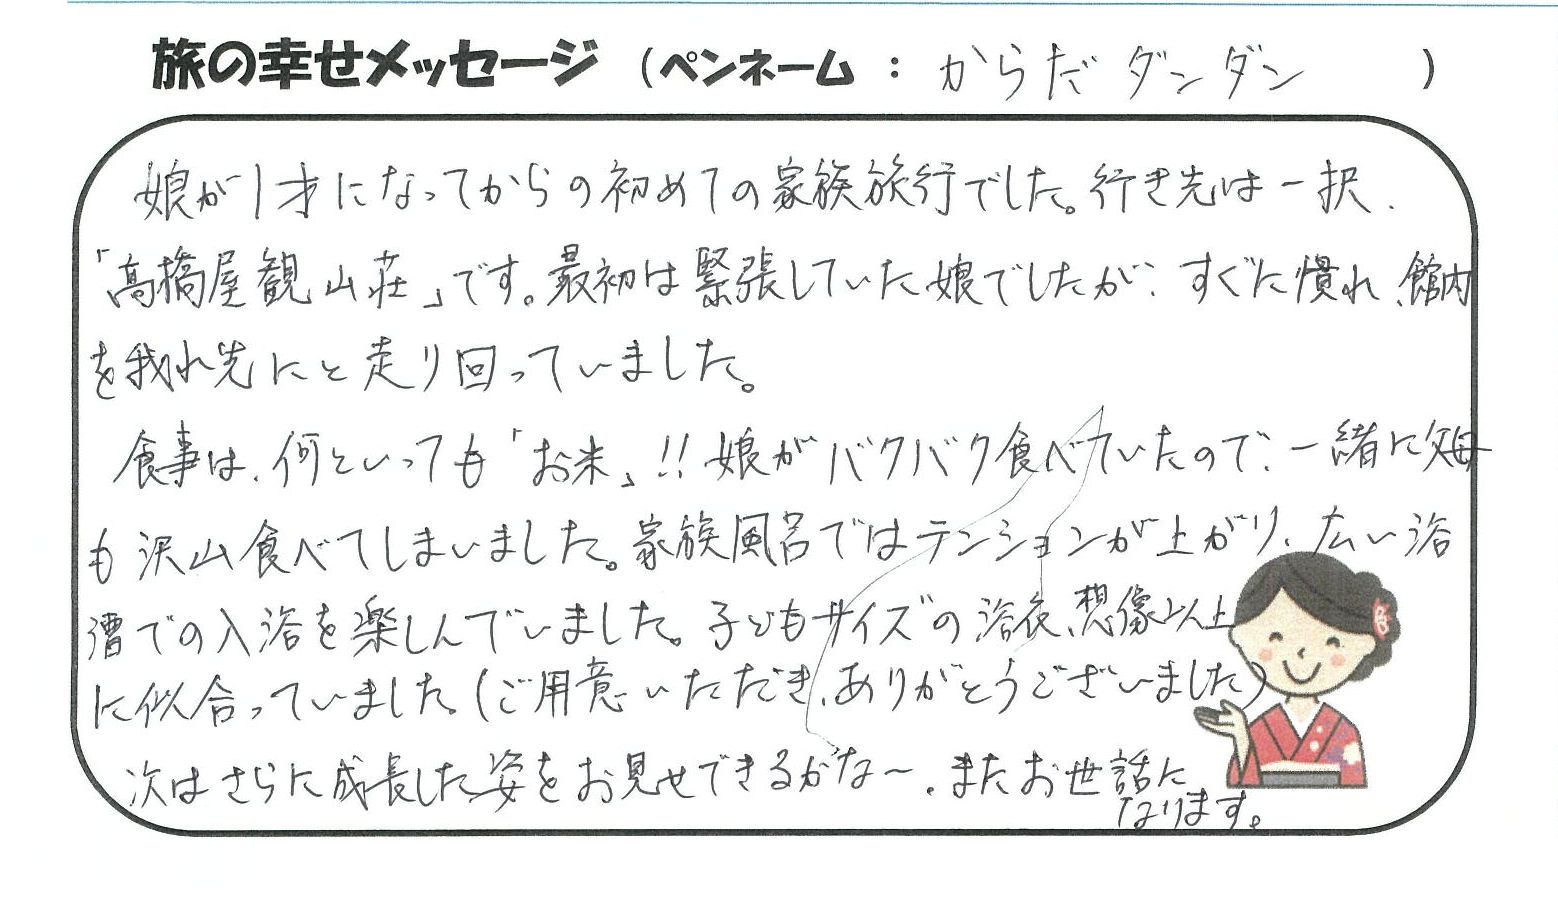 旅の幸せメッセージ (ペンネーム : からだダンダン )
娘が1才になってからの初めての家族旅行でした。行き先は一択、
「髙橋屋観山荘」です。最初は緊張していた娘でしたが、すぐに慣れ、館内
を我れ先にと走り回っていました。
食事は、何といっても「お米」!! 娘がバクバク食べていたので、一緒に父母
も沢山食べてしまいました。家族風呂ではテンションが上がり、広い浴
漕での入浴を楽しんでいました。子どもサイズの浴衣、想像以上
に似合っていました。(ご用意いただき、ありがとうございました)
次はさらに成長した姿をお見せできるかな〜。またお世話に
なります。